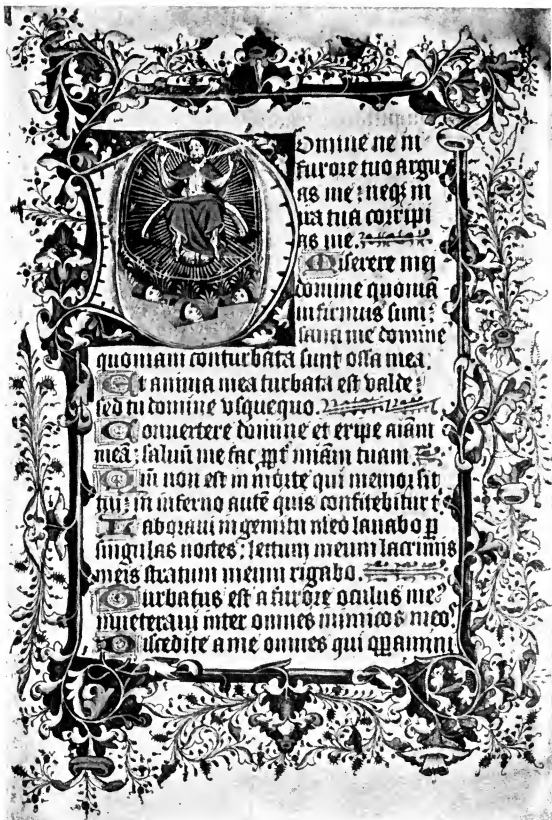 Domine ne in
furore tuo argu
as me: neqz in
ira tua corripi
as me.
Miserere mei
domine quoniā
infirmus sum:
sana me domine
quoniam conturbata sunt ossa mea.
Et anima mea turbata est valde:
sed tu domine vsquequo.
Convertere domine et eripe aīam
meā: salvū me fac ꝓpt̄ miām tuam.
Qm̄ non est in morte qui memor sit
tui: in inferno autē quis confitebitur t
Laboravi in gemitu meo lavabo ꝑ
singulas noctes: lectum meum lacrimis
meis stratum meum rigabo.
Turbatus est a furore oculus meꝰ
inveteravi inter omnes inimicos meos
Discedite a me omnes qui opamini